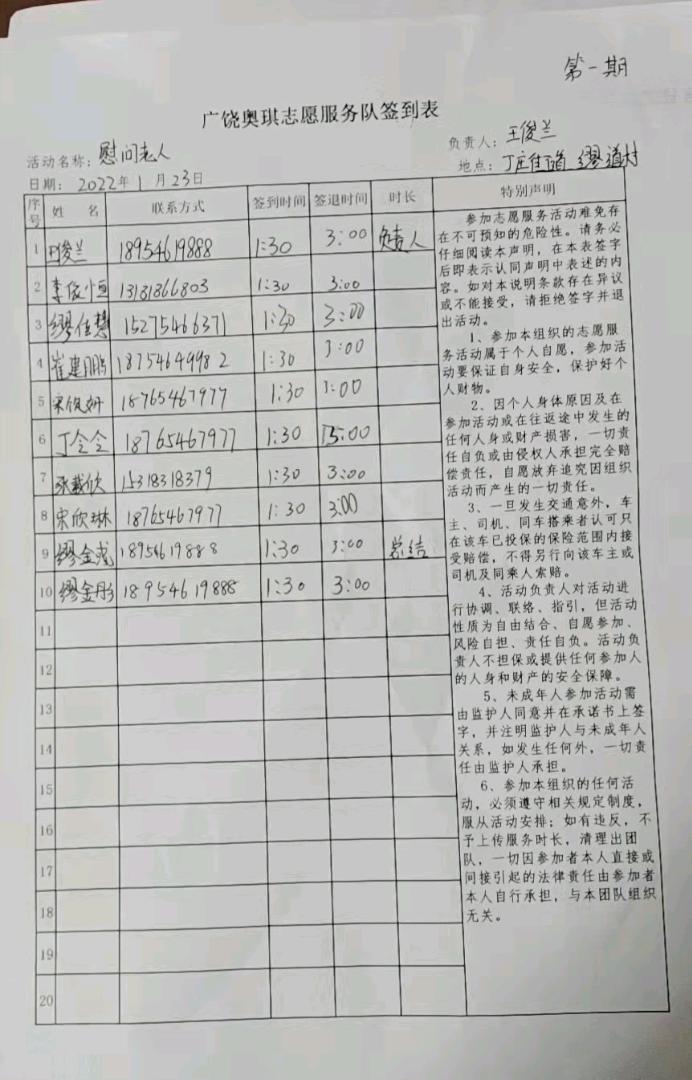 第一期
广饶奥琪志愿服务队签到表
活动名称：慰问老人
负责人：王俊兰
日期：2022年1月23日
地点：丁庄街道 缪道村
序号 姓名 联系方式 签到时间 签退时间 时长 特别声明
1 王俊兰 18954619888 1:30 3:00 负责人
2 李俊恒 13181866803 1:30 3:00
3 缪佳慧 15275466371 1:30 3:00
4 崔建鹏 18754649982 1:30 3:00
5 宋 18765467977 1:30 3:00
6 丁仝仝 18765467977 1:30 15:00
7 欣 15318318379 1:30 3:00
8 宋欣琳 18765467977 1:30 3:00
9 缪金成 18954619888 1:30 3:00 总结
10 缪金彤 18954619888 1:30 3:00
11
12
13
14
15
16
17
18
19
20
参加志愿服务活动难免存
在不可预知的危险性。请务必
仔细阅读本声明，在本表签字
后即表示认同声明中表述的内
容。如对本说明条款存在异议
或不能接受，请拒绝签字并退
出活动。
1、参加本组织的志愿服
务活动属于个人自愿，参加活
动要保证自身安全，保护好个
人财物。
2、因个人身体原因及在
参加活动或在往返途中发生的
任何人身或财产损害，一切责
任自负或由侵权人承担完全赔
偿责任，自愿放弃追究因组织
活动而产生的一切责任。
3、一旦发生交通意外，车
主、司机、同车搭乘者认可只
在该车已投保的保险范围内接
受赔偿，不得另行向该车主或
司机及同乘人索赔。
4、活动负责人对活动进
行协调、联络、指引，但活动
性质为自由结合、自愿参加、
风险自担、责任自负。活动负
责人不担保或提供任何参加人
的人身和财产的安全保障。
5、未成年人参加活动需
由监护人同意并在承诺书上签
字，并注明监护人与未成年人
关系，如发生任何外，一切责
任由监护人承担。
6、参加本组织的任何活
动，必须遵守相关规定制度，
服从活动安排；如有违反，不
予上传服务时长，清理出团
队，一切因参加者本人直接或
间接引起的法律责任由参加者
本人自行承担，与本团队组织
无关。